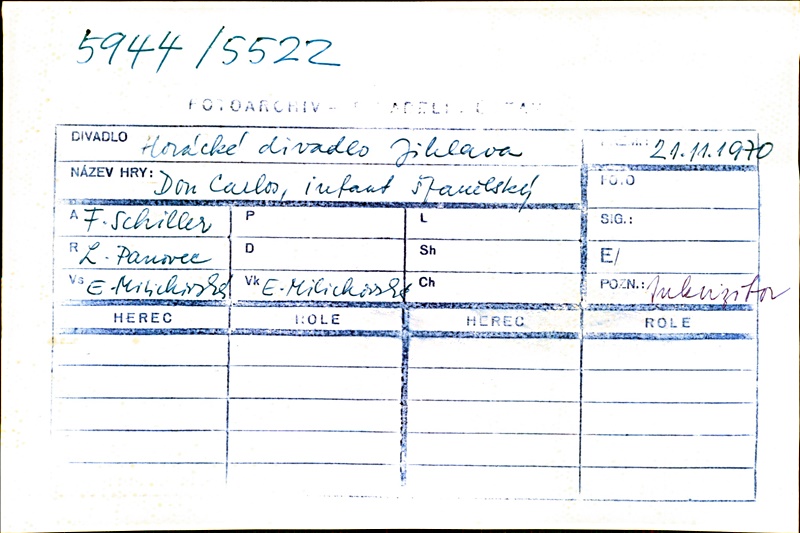 5944/5522
FOTOARCHIV
DIVADLO Horácké divadlo Jihlava 21.11.1970
NÁZEV HRY: Don Carlos, infant španělský FOTO
A F. Schiller P L SIG.:
R L. Panovec D Sh E/
Vs E. Milichovská Vk E. Milichovská Ch POZN.: Inkvizitor
HEREC ROLE HEREC ROLE